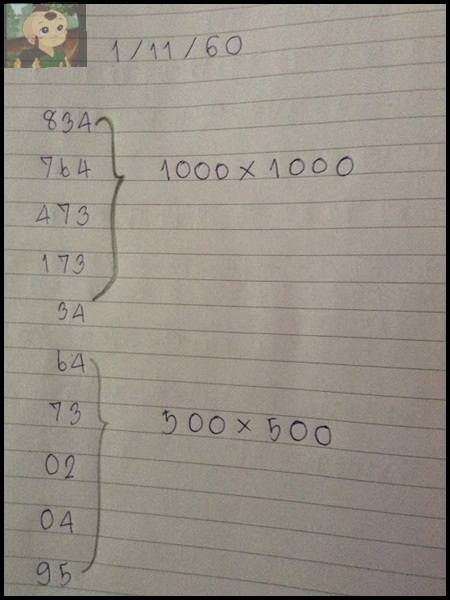 1/11/60
834
764 1000 × 1000
473
173
34
64
73 500 × 500
02
04
95